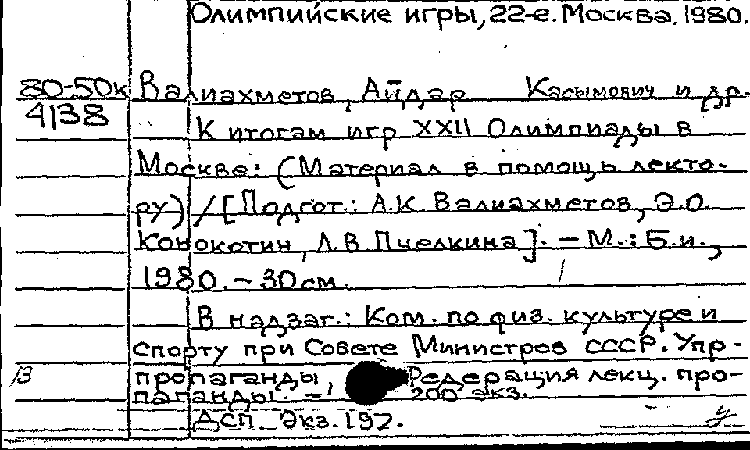 Олимпийские игры, 22-е. Москва. 1980.
80-50к Валиахметов, Айдар Касымович и др.
4138
К итогам игр XXII Олимпиады в
Москве: (Материал в помощь лекто-
ру) / [Подгот.: А.К. Валиахметов, Э.О.
Конокотин, Л.В. Пчелкина]. – М.: Б.и.,
1980. – 30 см.
В надзаг.: Ком. по физ. культуре и
спорту при Совете Министров СССР. Упр.
пропаганды, Федерация лекц. про-
паганды. – 200 экз.
ДСП. Экз. 197.